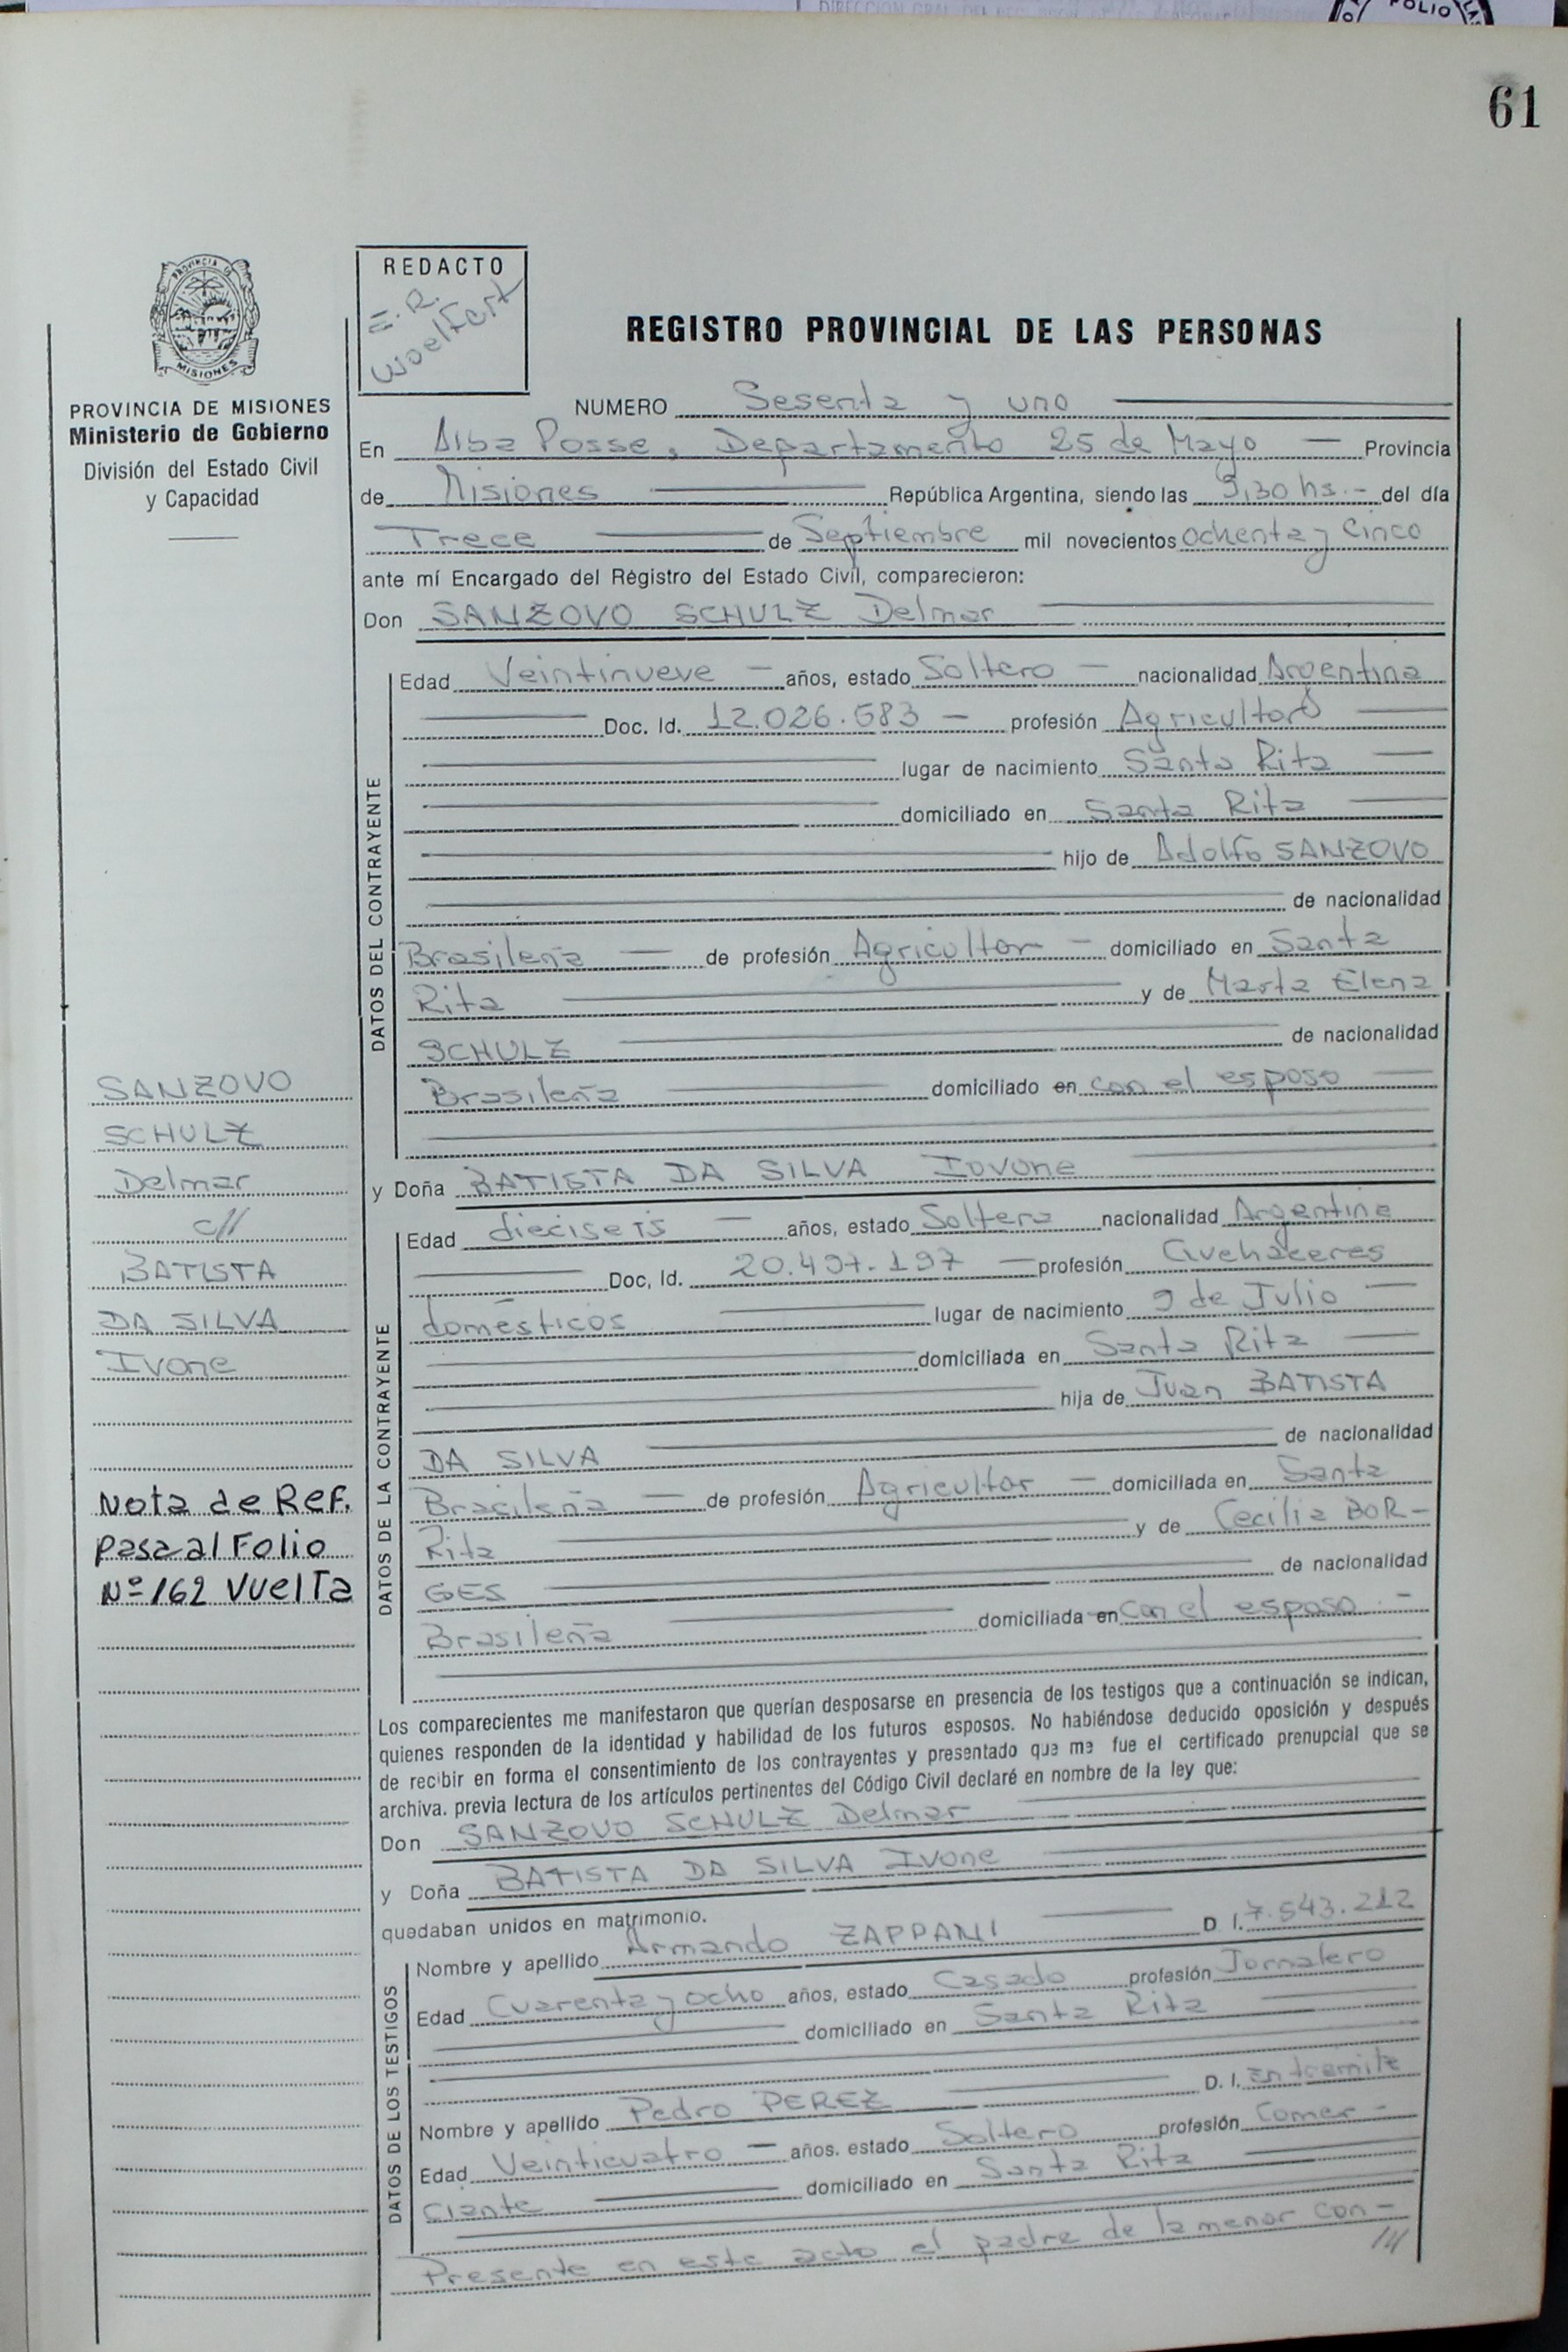 61
REDACTO
E. R.
Woelfert
REGISTRO PROVINCIAL DE LAS PERSONAS
PROVINCIA DE MISIONES
Ministerio de Gobierno
División del Estado Civil
y Capacidad
NUMERO Sesenta y uno
En Alba Posse, Departamento 25 de Mayo — Provincia
de Misiones República Argentina, siendo las 9,30 hs.- del día
Trece de Septiembre mil novecientos ochenta y cinco
ante mí Encargado del Registro del Estado Civil, comparecieron:
Don SANZOVO SCHULZ Delmar
DATOS DEL CONTRAYENTE
Edad Veintinueve — años, estado Soltero — nacionalidad Argentina
Doc. Id. 12.026.583 — profesión Agricultor
lugar de nacimiento Santa Rita
domiciliado en Santa Rita
hijo de Adolfo SANZOVO
de nacionalidad
Brasileña — de profesión Agricultor — domiciliado en Santa
Rita y de Marta Elena
SCHULZ de nacionalidad
Brasileña domiciliado en con el esposo
y Doña BATISTA DA SILVA Iovone
DATOS DE LA CONTRAYENTE
Edad dieciseis — años, estado Soltera nacionalidad Argentina
Doc, Id. 20.497.197 — profesión Quehaceres
domésticos lugar de nacimiento 9 de Julio
domiciliada en Santa Rita
hija de Juan BATISTA
DA SILVA de nacionalidad
Brasileña — de profesión Agricultor — domiciliada en Santa
Rita y de Cecilia BOR-
GES de nacionalidad
Brasileña domiciliada en con el esposo.-
SANZOVO
SCHULZ
Delmar
c//
BATISTA
DA SILVA
Ivone
Nota de Ref.
pasa al Folio
Nº 162 Vuelta
Los comparecientes me manifestaron que querían desposarse en presencia de los testigos que a continuación se indican,
quienes responden de la identidad y habilidad de los futuros esposos. No habiéndose deducido oposición y después
de recibir en forma el consentimiento de los contrayentes y presentado que me fue el certificado prenupcial que se
archiva. previa lectura de los artículos pertinentes del Código Civil declaré en nombre de la ley que:
Don SANZOVO SCHULZ Delmar
y Doña BATISTA DA SILVA Ivone
quedaban unidos en matrimonio.
DATOS DE LOS TESTIGOS
Nombre y apellido Armando ZAPPANI D I. 7.543.212
Edad Cuarenta y ocho años, estado Casado profesión Jornalero
domiciliado en Santa Rita
Nombre y apellido Pedro PEREZ D. I. En tramite
Edad Veinticuatro — años. estado Soltero profesión Comer-
ciante domiciliado en Santa Rita
Presente en este acto el padre de la menor con-